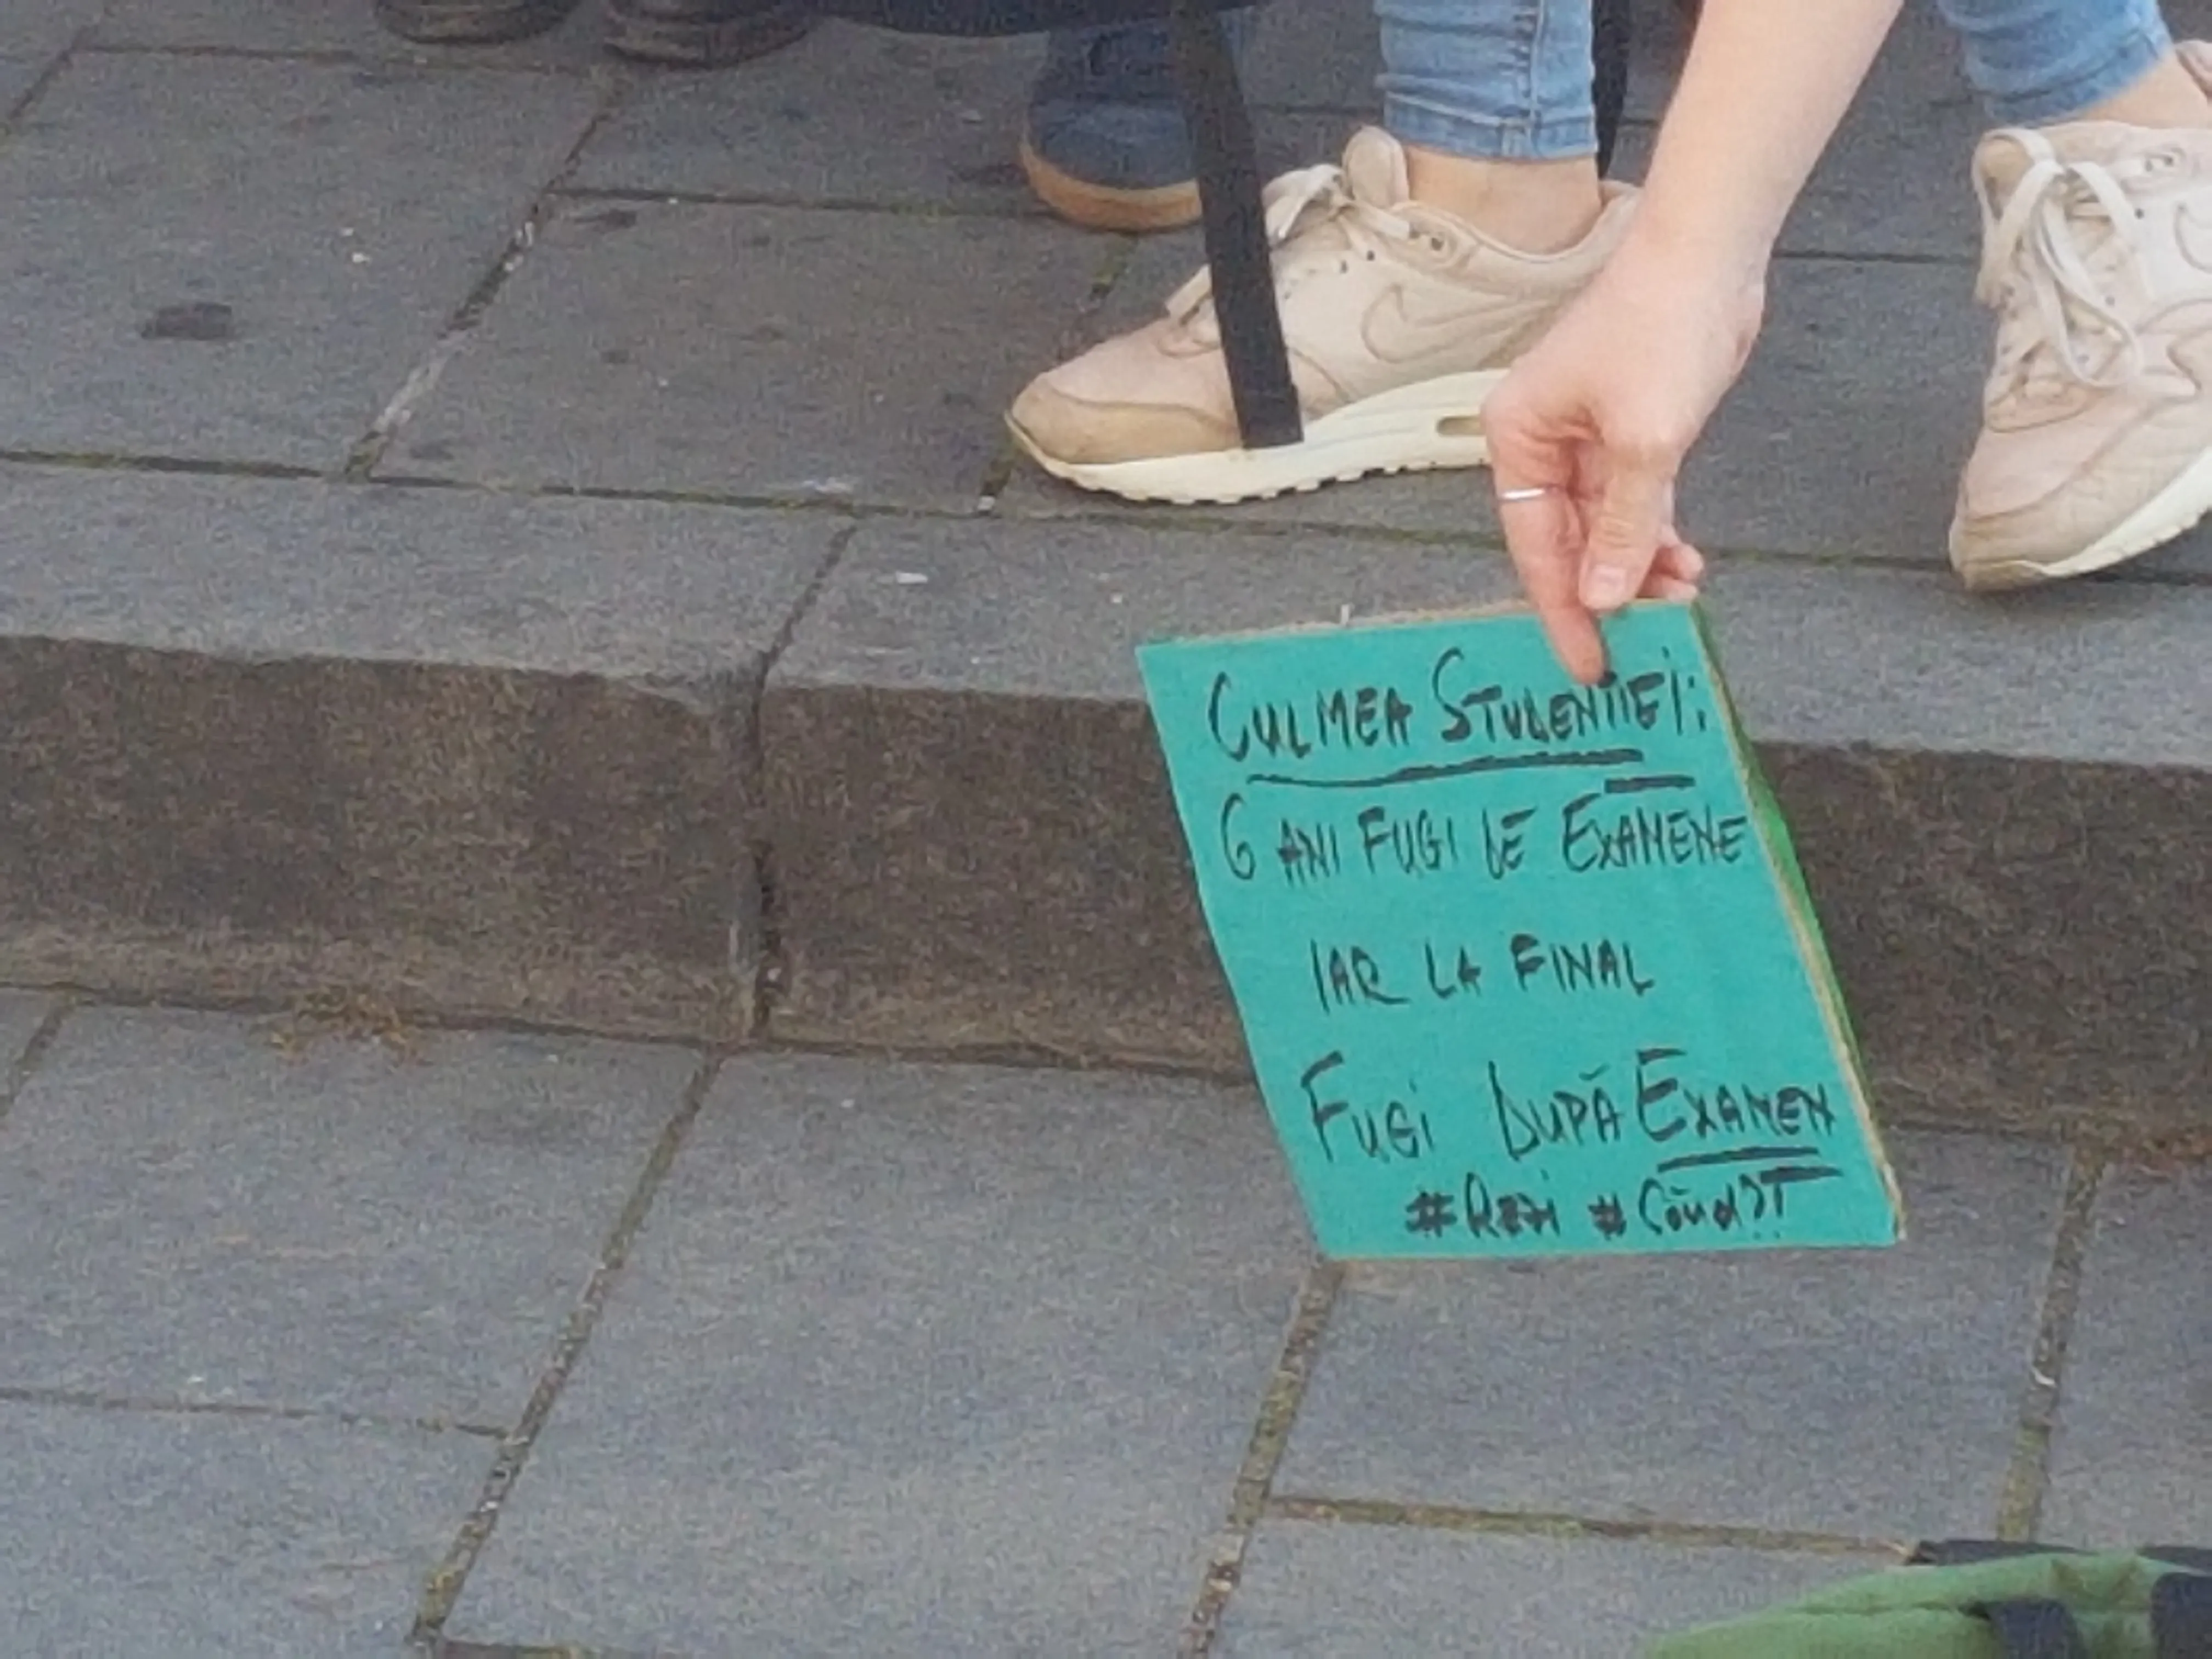 CULMEA STUDENȚIEI:
6 ANI FUGI DE EXAMENE
IAR LA FINAL
FUGI DUPĂ EXAMEN
#Rezi #Când?!